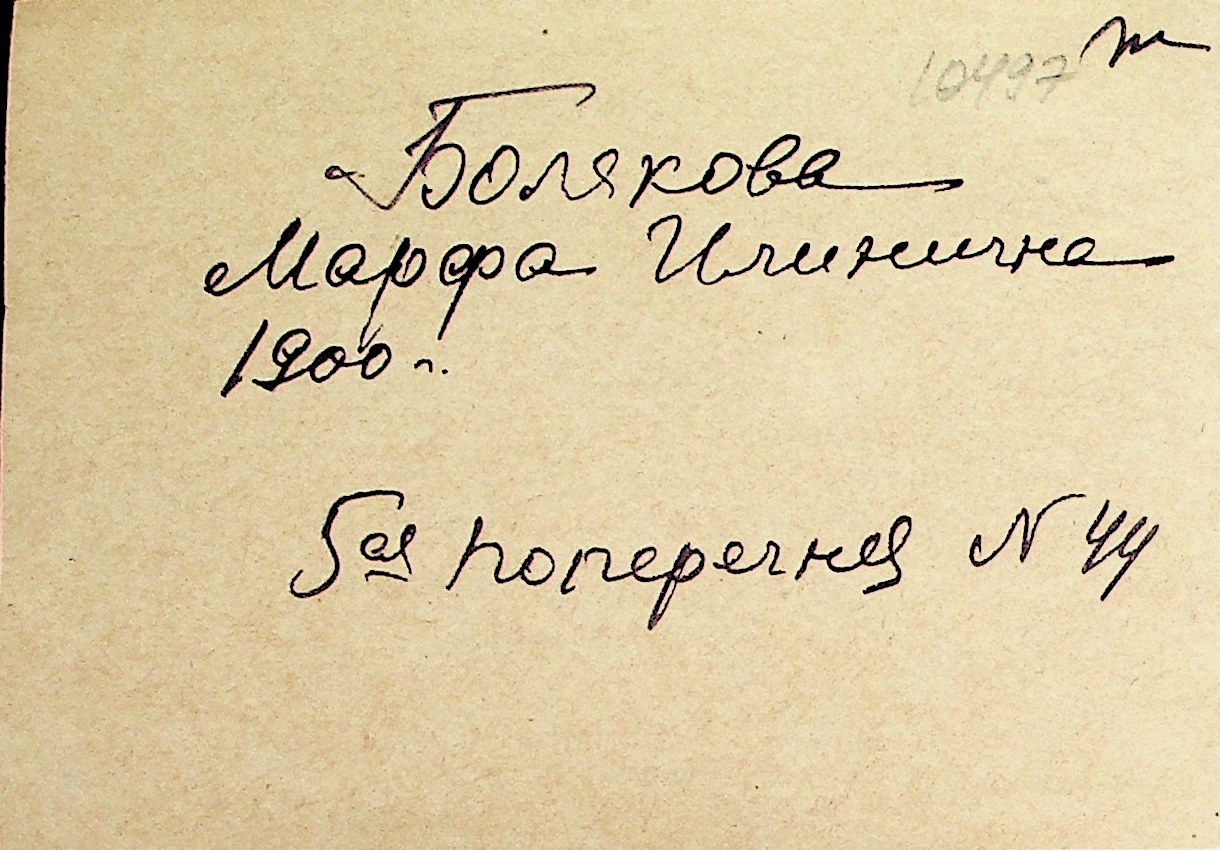 10497 т
Болякова
Марфа Илинична
1900 г.
5ая поперечная N 44